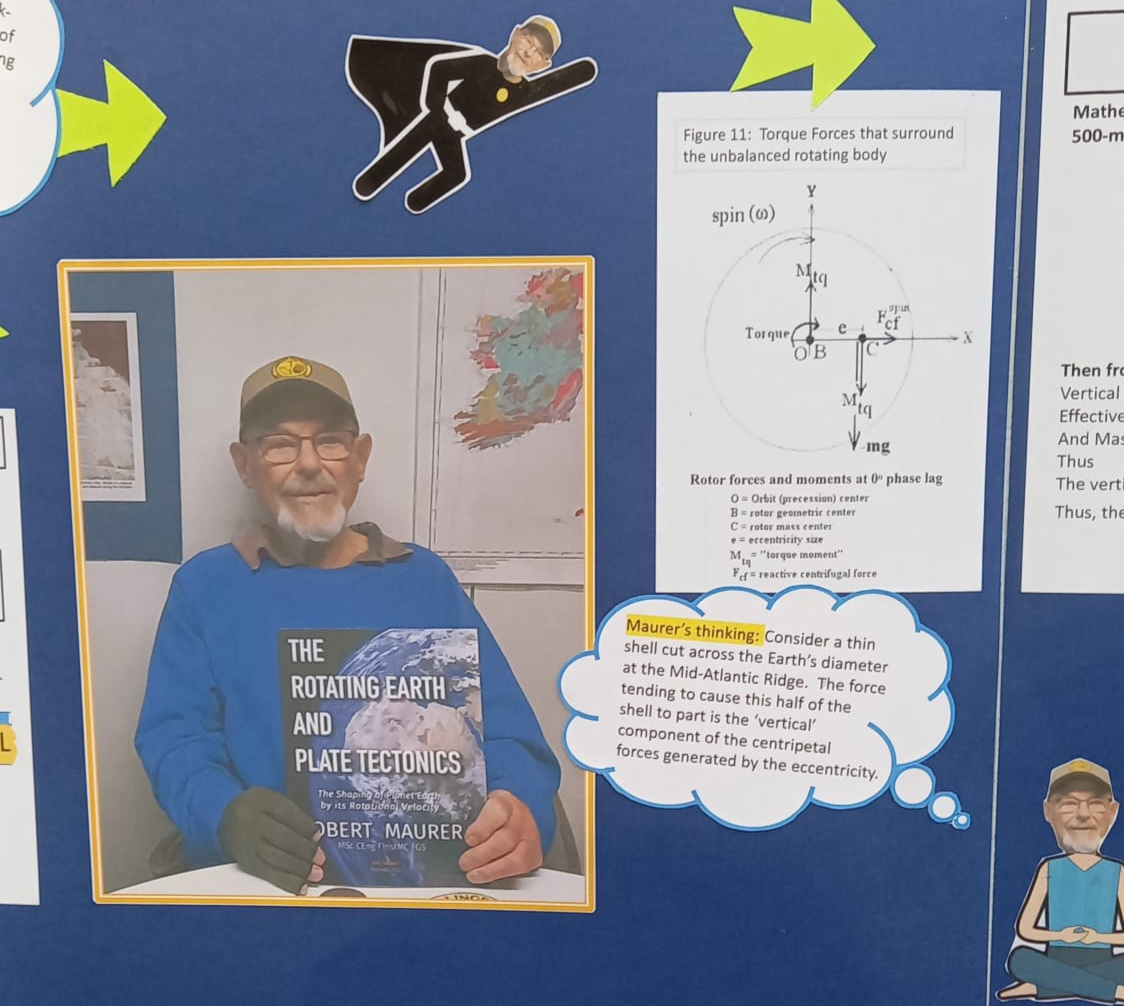 of
ng
Figure 11: Torque Forces that surround
the unbalanced rotating body
Y
spin (ω)
Mtq
Fcf spin
Torque
e
X
O B
C
Mtq
mg
Rotor forces and moments at 0° phase lag
O = Orbit (precession) center
B = rotor geometric center
C = rotor mass center
e = eccentricity size
Mtq = "torque moment"
Fcf = reactive centrifugal force
Maurer's thinking: Consider a thin
shell cut across the Earth's diameter
at the Mid-Atlantic Ridge. The force
tending to cause this half of the
shell to part is the 'vertical'
component of the centripetal
forces generated by the eccentricity.
THE
ROTATING EARTH
AND
PLATE TECTONICS
The Shaping of Planet Earth
by its Rotational Velocity
OBERT MAURER
MSc CEng FInstMC FGS
L
Mathe
500-m
Then fro
Vertical
Effective
And Mas
Thus
The verti
Thus, the